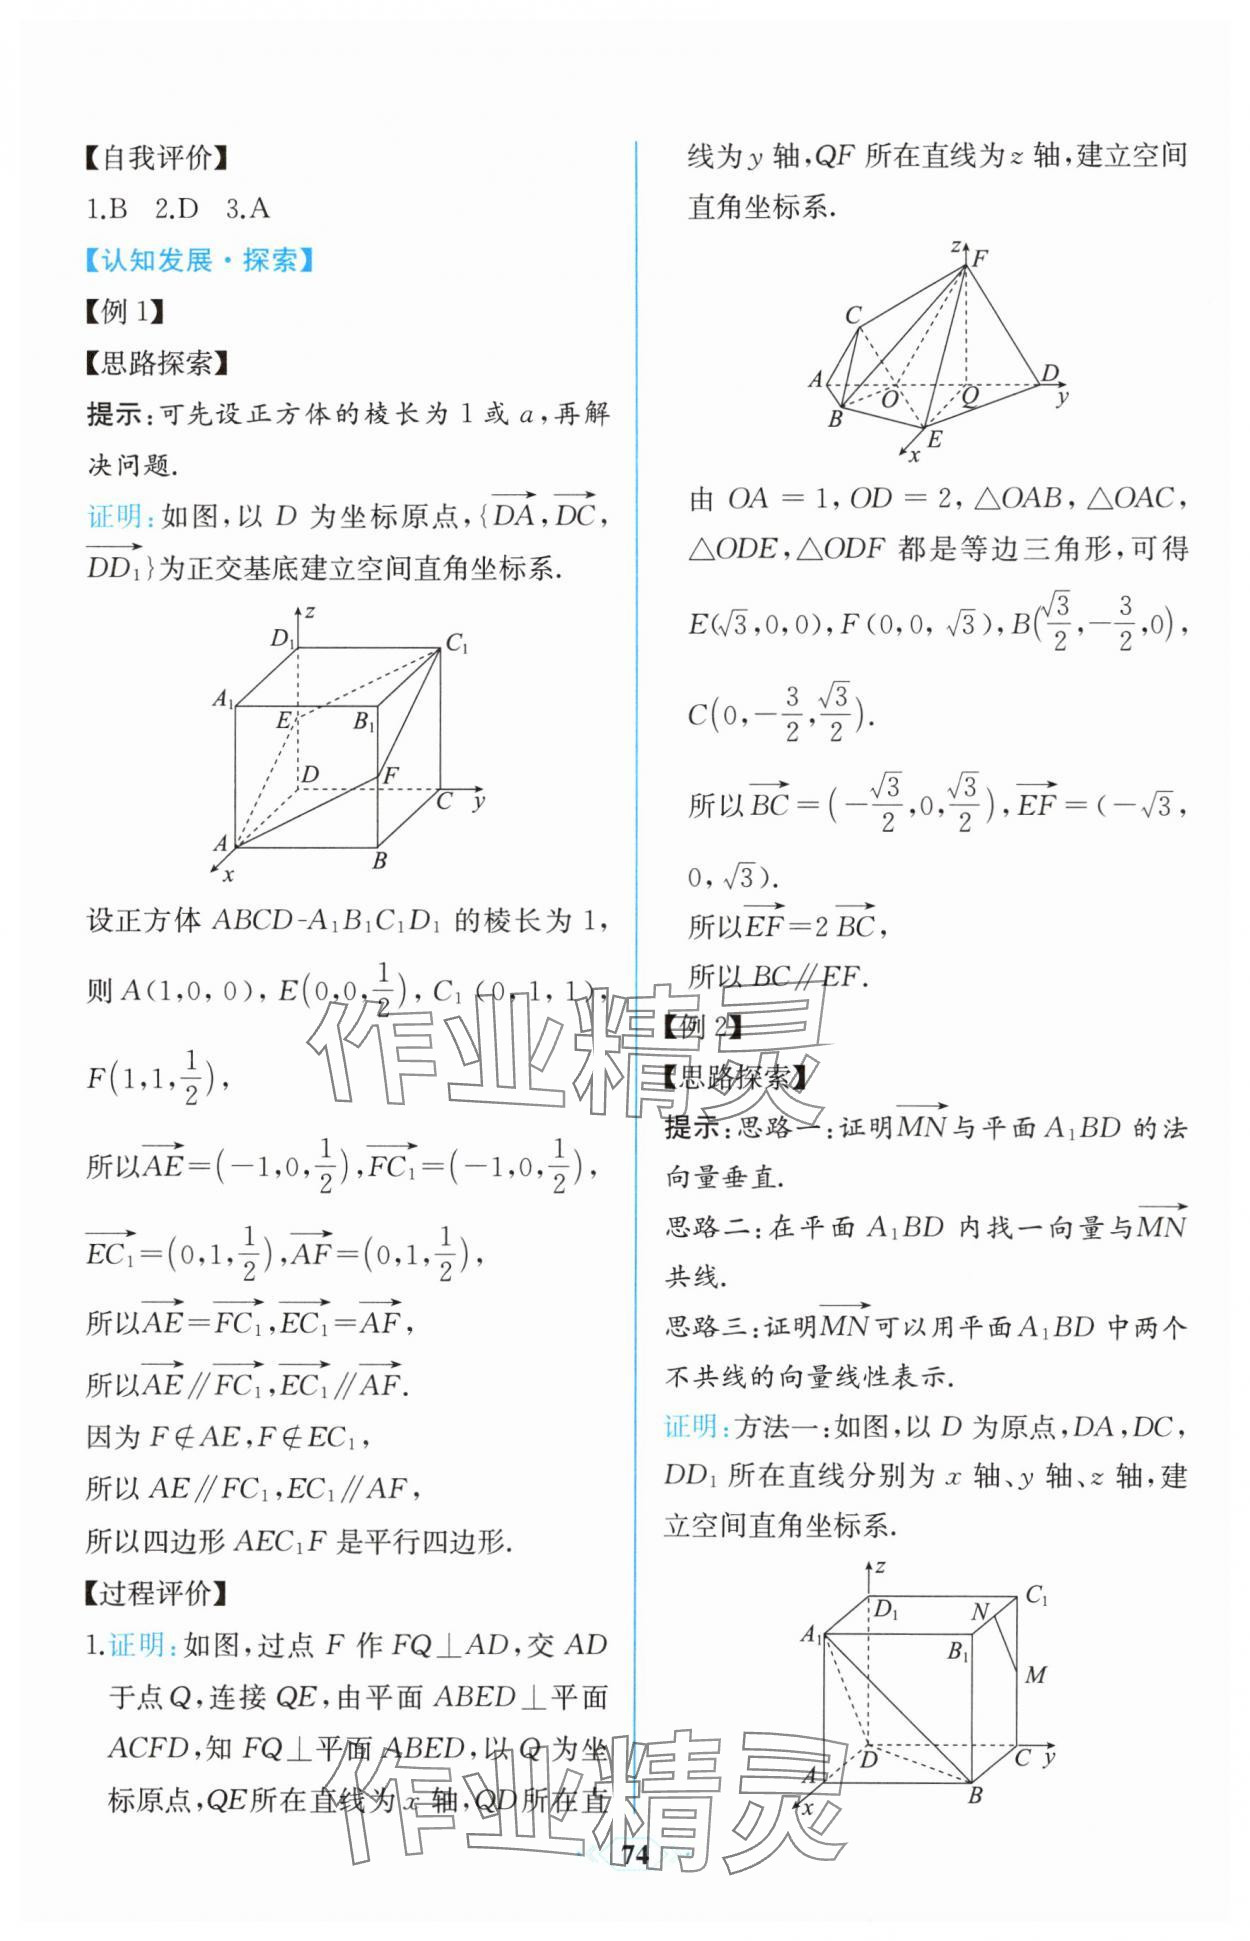 【自我评价】
1.B 2.D 3.A
【认知发展·探索】
【例1】
【思路探索】
提示:可先设正方体的棱长为1或a,再解
决问题.
证明:如图,以 D 为坐标原点,{$\overrightarrow{DA}$,$\overrightarrow{DC}$,
$\overrightarrow{DD_1}$}为正交基底建立空间直角坐标系.
z
D₁
C₁
A₁
E
B₁
D
F
C
y
A
B
x
设正方体 ABCD-A₁B₁C₁D₁ 的棱长为1,
则 A(1,0,0), E(0,0,$\frac{1}{2}$), C₁(0,1,1),
F(1,1,$\frac{1}{2}$),
所以$\overrightarrow{AE}$=(-1,0,$\frac{1}{2}$),$\overrightarrow{FC_1}$=(-1,0,$\frac{1}{2}$),
$\overrightarrow{EC_1}$=(0,1,$\frac{1}{2}$),$\overrightarrow{AF}$=(0,1,$\frac{1}{2}$),
所以$\overrightarrow{AE}$=$\overrightarrow{FC_1}$,$\overrightarrow{EC_1}$=$\overrightarrow{AF}$,
所以$\overrightarrow{AE}$∥$\overrightarrow{FC_1}$,$\overrightarrow{EC_1}$∥$\overrightarrow{AF}$.
因为 F∉AE,F∉EC₁,
所以 AE∥FC₁,EC₁∥AF,
所以四边形 AEC₁F 是平行四边形.
【过程评价】
1.证明:如图,过点 F 作 FQ⊥AD,交 AD
于点Q,连接 QE,由平面 ABED⊥平面
ACFD,知 FQ⊥平面 ABED,以 Q 为坐
标原点,QE所在直线为x轴,QD所在直
线为y轴,QF 所在直线为z轴,建立空间
直角坐标系.
z
F
C
A
O
Q
D
y
B
E
x
由 OA=1,OD=2,△OAB,△OAC,
△ODE,△ODF 都是等边三角形,可得
E($\sqrt{3}$,0,0),F(0,0,$\sqrt{3}$),B($\frac{\sqrt{3}}{2}$,-$\frac{3}{2}$,0),
C(0,-$\frac{3}{2}$,$\frac{\sqrt{3}}{2}$).
所以$\overrightarrow{BC}$=(-$\frac{\sqrt{3}}{2}$,0,$\frac{\sqrt{3}}{2}$),$\overrightarrow{EF}$=(-$\sqrt{3}$,
0,$\sqrt{3}$).
所以$\overrightarrow{EF}$=2$\overrightarrow{BC}$,
所以 BC∥EF.
【例2】
【思路探索】
提示:思路一:证明$\overrightarrow{MN}$与平面 A₁BD 的法
向量垂直.
思路二:在平面 A₁BD 内找一向量与$\overrightarrow{MN}$
共线.
思路三:证明$\overrightarrow{MN}$可以用平面A₁BD 中两个
不共线的向量线性表示.
证明:方法一:如图,以 D 为原点,DA,DC,
DD₁ 所在直线分别为 x 轴、y 轴、z 轴,建
立空间直角坐标系.
z
D₁
N
C₁
A₁
B₁
M
D
C
y
A
B
x
作业精灵
作业精灵
74